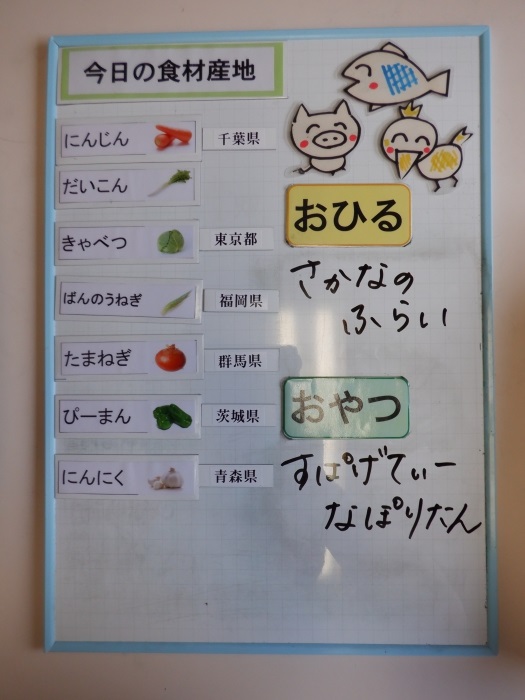 今日の食材産地
にんじん 千葉県
だいこん
きゃべつ 東京都
ばんのうねぎ 福岡県
たまねぎ 群馬県
ぴーまん 茨城県
にんにく 青森県
おひる
さかなの
ふらい
おやつ
すぱげてぃー
なぽりたん